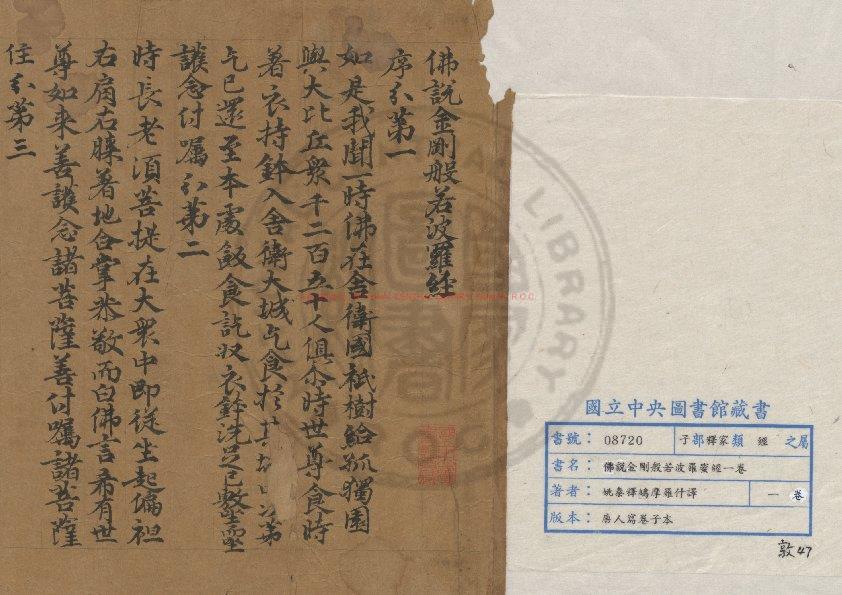 佛説金剛般若波羅經
序分第一
如是我聞一時佛在舍衛國祇樹給孤獨園
與大比丘衆千二百五十人俱尒時世尊食時
著衣持鉢入舍衛大城乞食於其第
乞已還至本處飯食訖収衣鉢洗足已敷
護念付囑分第二
時長老須菩提在大衆中即從坐起偏袒
右肩右膝著地合掌恭敬而白佛言希有世
尊如来善護念諸菩薩善付囑諸菩薩
住分第三
國立中央圖書館藏書
書號： 08720 子部釋家類 經 之屬
書名： 佛說金剛般若波羅蜜經一卷
著者： 姚秦釋鳩摩羅什譯 一卷
版本： 唐人寫卷子本
敦47